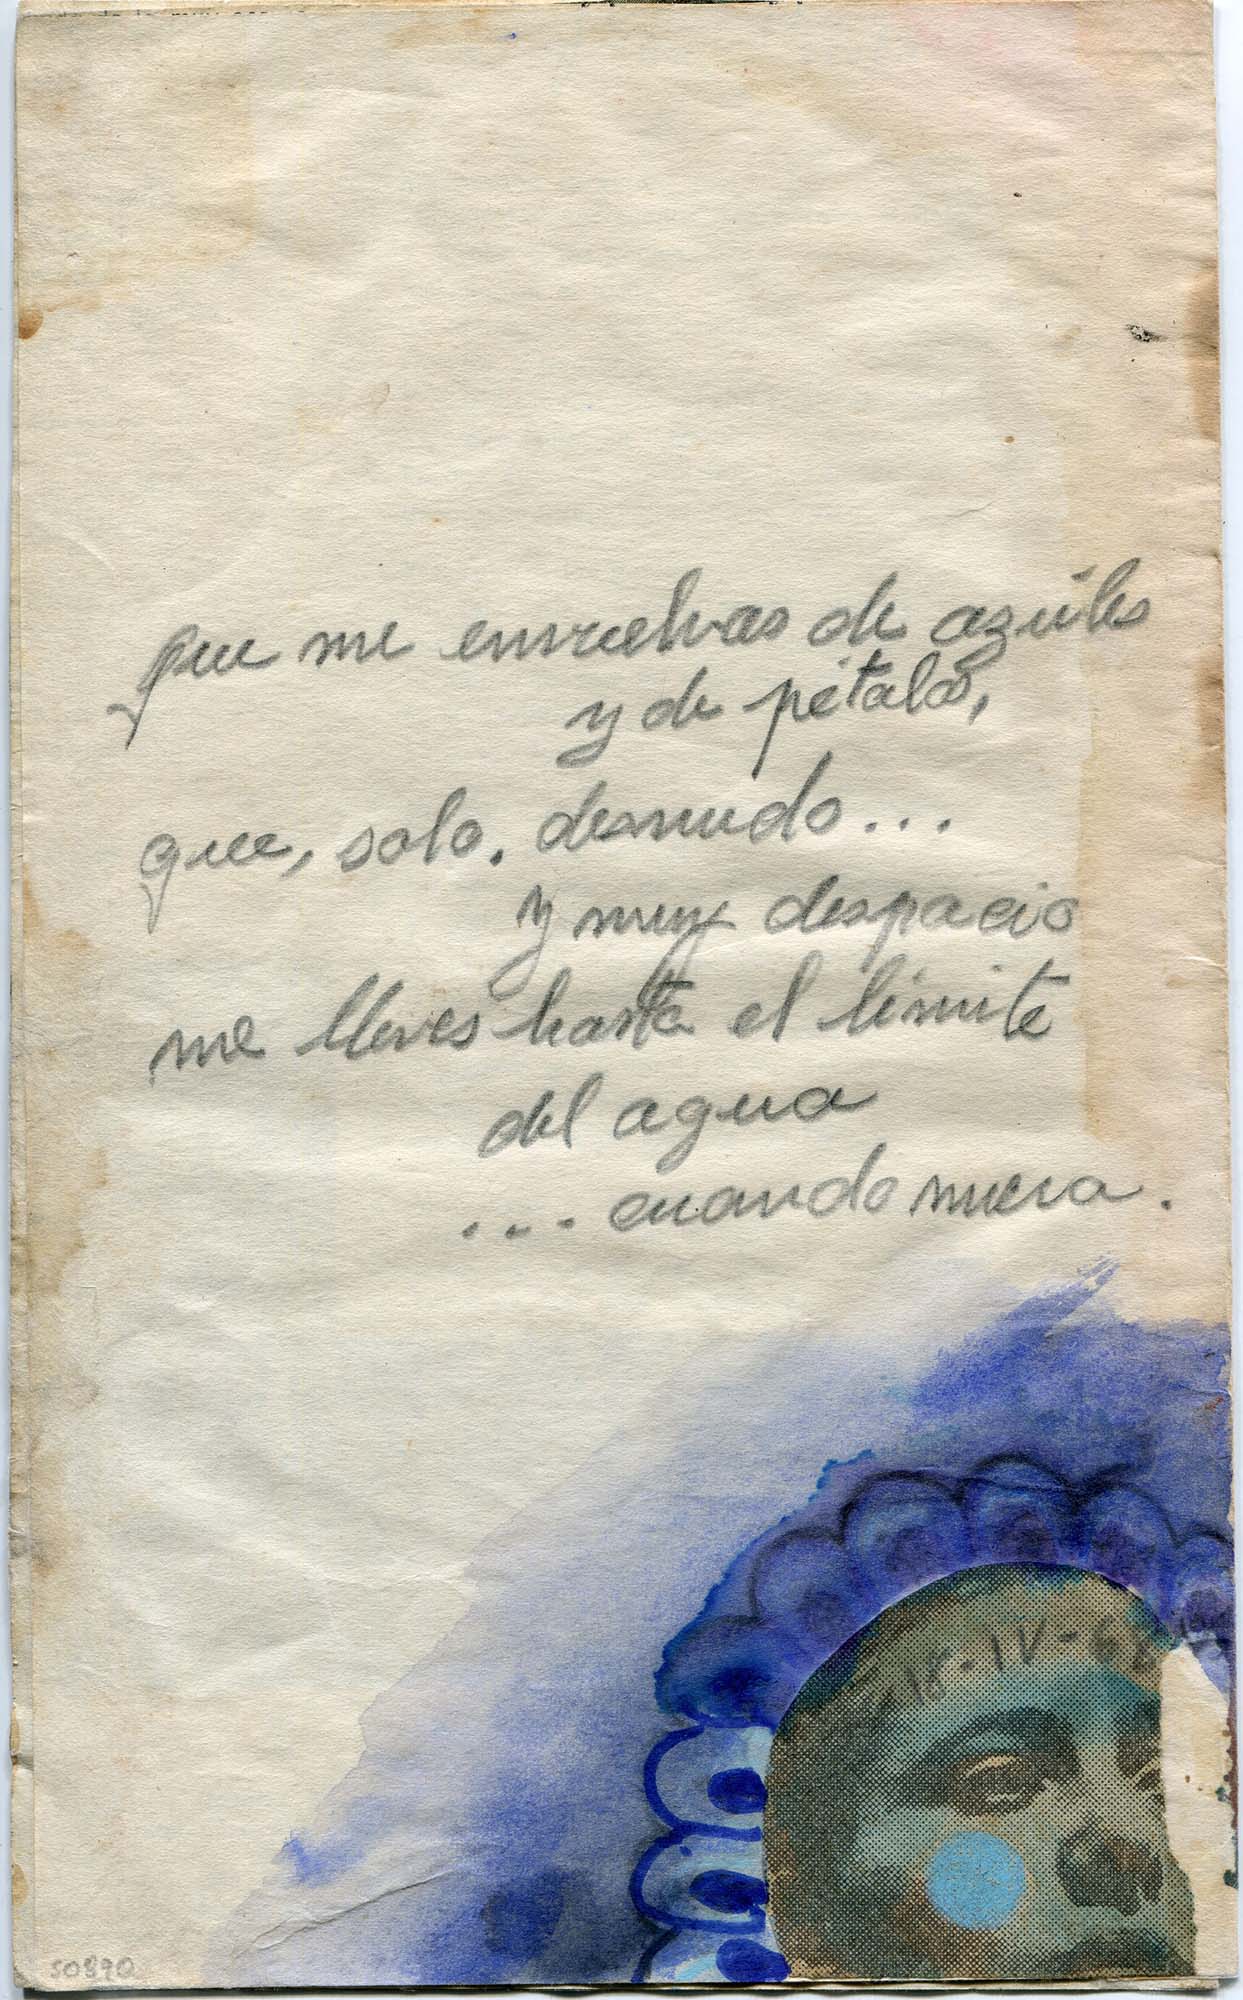 que me envuelvas de azúles
y de pétalos,
que, solo, desnudo...
y muy despacio
me lleves hasta el límite
del agua
... cuando muera.
50890